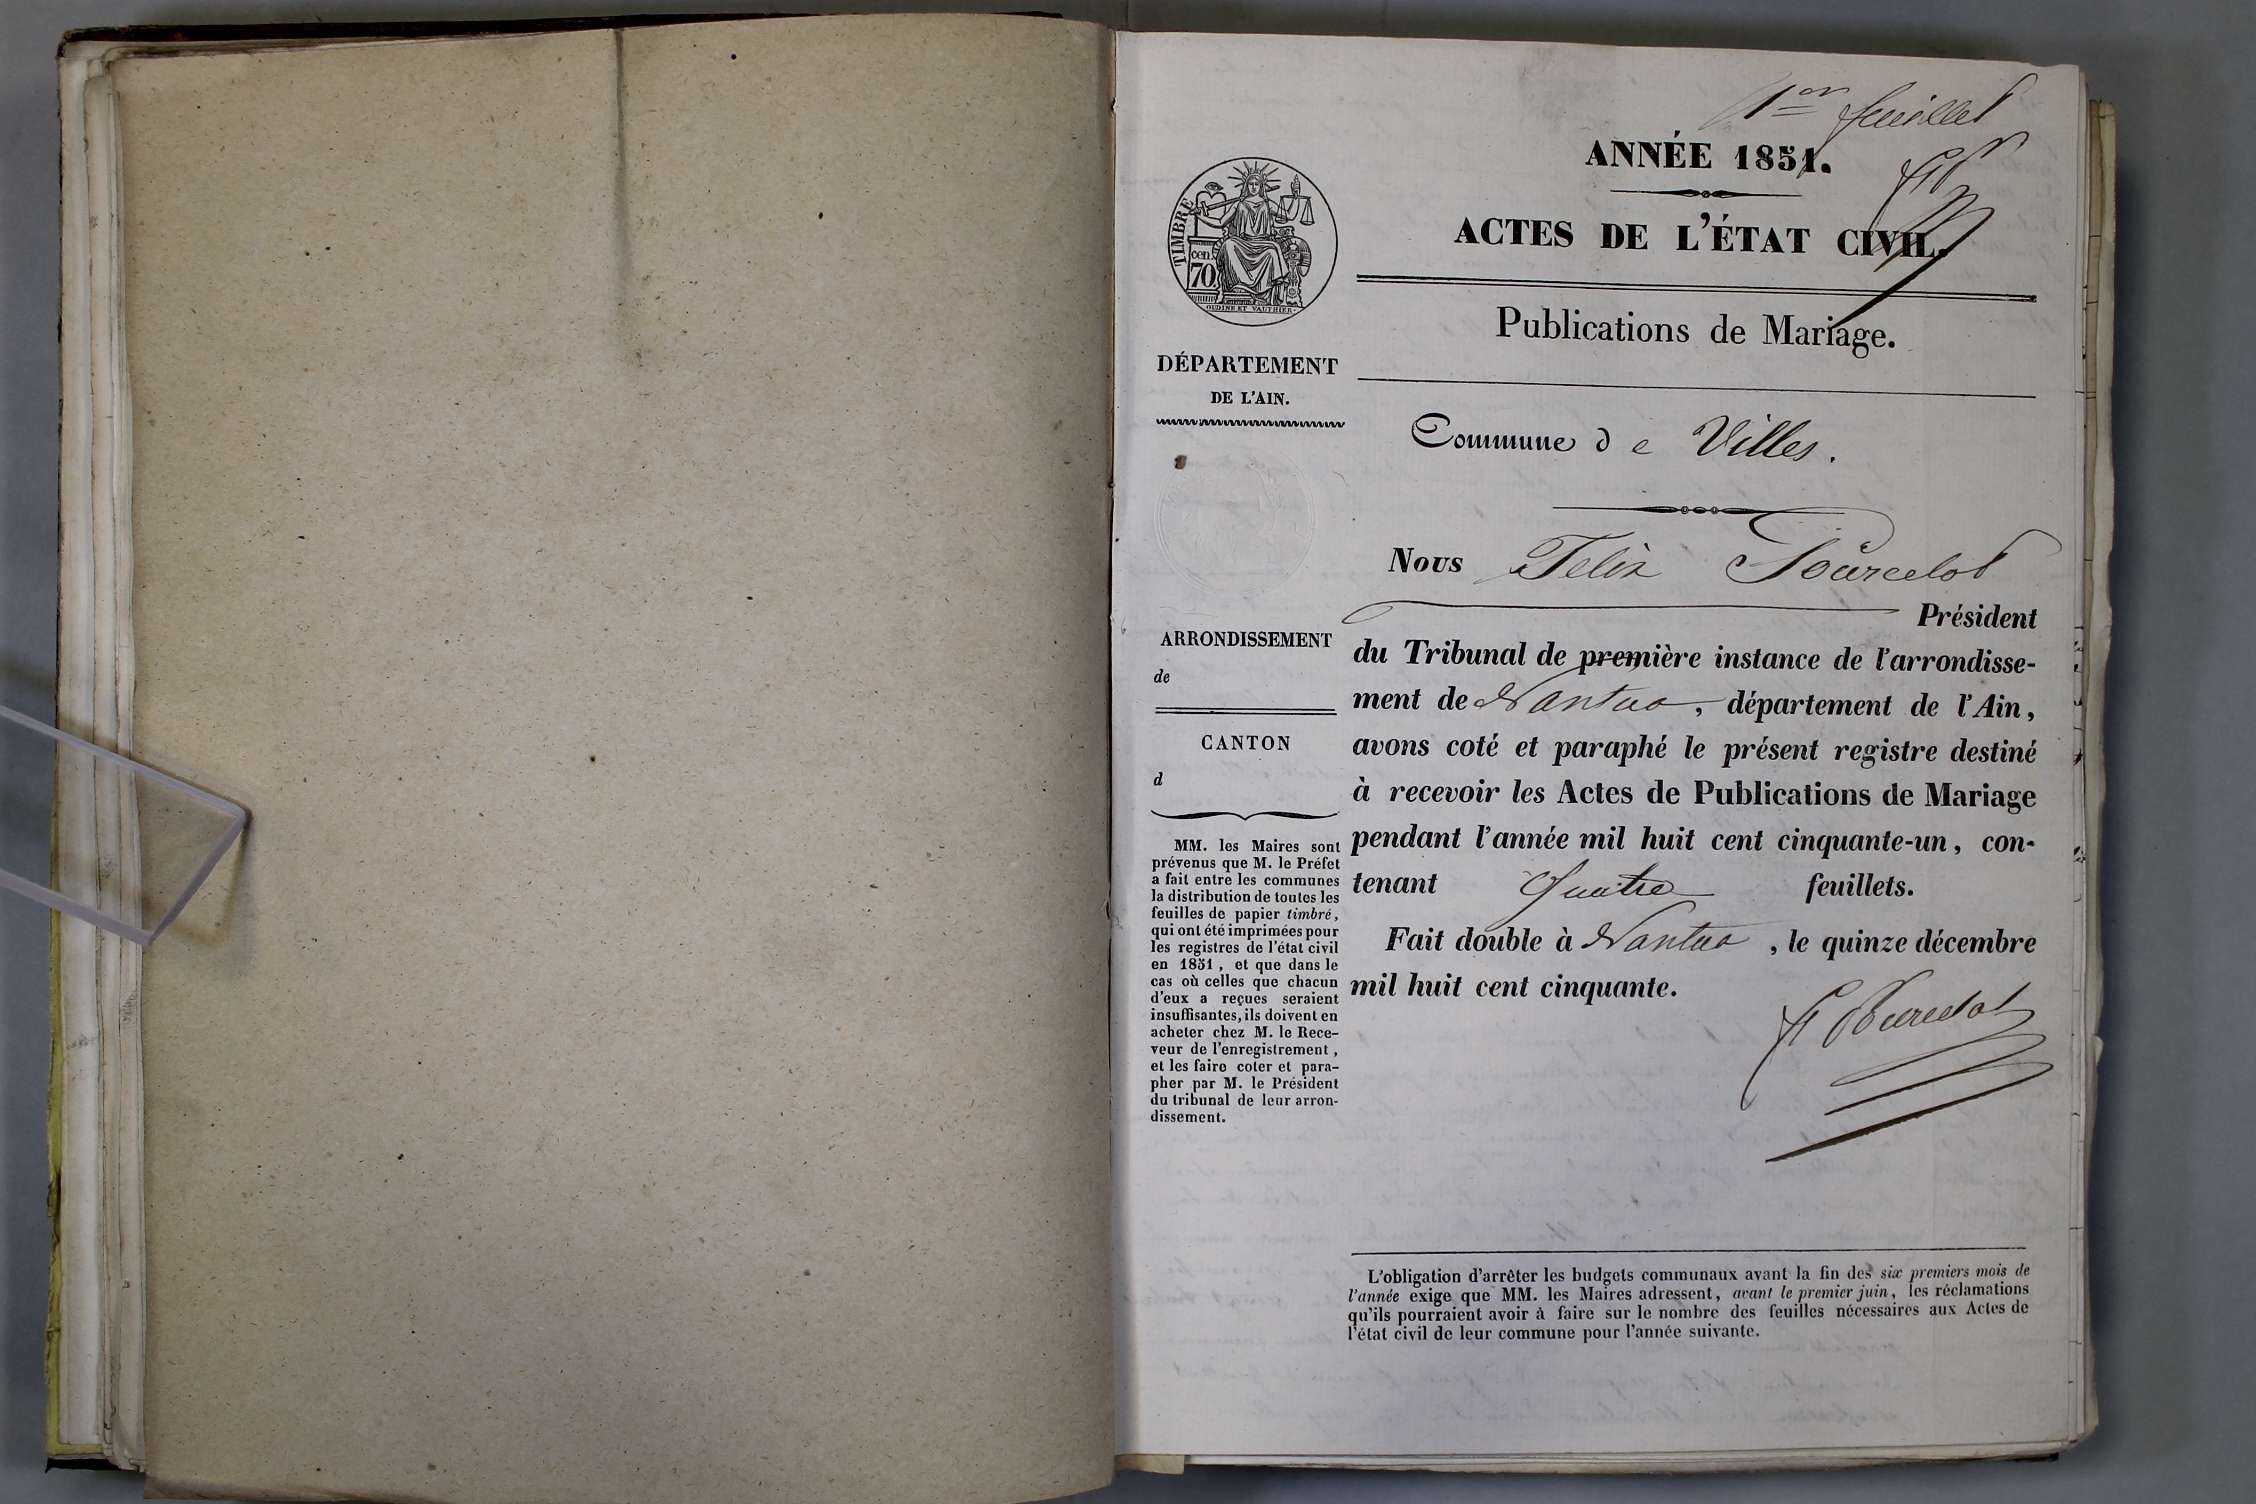 1er feuillet
ANNÉE 1851.
FP
ACTES DE L'ÉTAT CIVIL.
Publications de Mariage.
Commune de Villes.
Nous Felix Pourcelot
Président
du Tribunal de première instance de l'arrondisse-
ment de Nantua, département de l'Ain,
avons coté et paraphé le présent registre destiné
à recevoir les Actes de Publications de Mariage
pendant l'année mil huit cent cinquante-un, con-
tenant Quatre feuillets.
Fait double à Nantua, le quinze décembre
mil huit cent cinquante.
F Pourcelot
TIMBRE
cen.
70
OUDINE ET VAUTHIER.
DÉPARTEMENT
DE L'AIN.
ARRONDISSEMENT
de
CANTON
d
MM. les Maires sont
prévenus que M. le Préfet
a fait entre les communes
la distribution de toutes les
feuilles de papier timbré,
qui ont été imprimées pour
les registres de l'état civil
en 1851, et que dans le
cas où celles que chacun
d'eux a reçues seraient
insuffisantes, ils doivent en
acheter chez M. le Rece-
veur de l'enregistrement,
et les faire coter et para-
pher par M. le Président
du tribunal de leur arron-
dissement.
L'obligation d'arrêter les budgets communaux avant la fin des six premiers mois de
l'année exige que MM. les Maires adressent, avant le premier juin, les réclamations
qu'ils pourraient avoir à faire sur le nombre des feuilles nécessaires aux Actes de
l'état civil de leur commune pour l'année suivante.